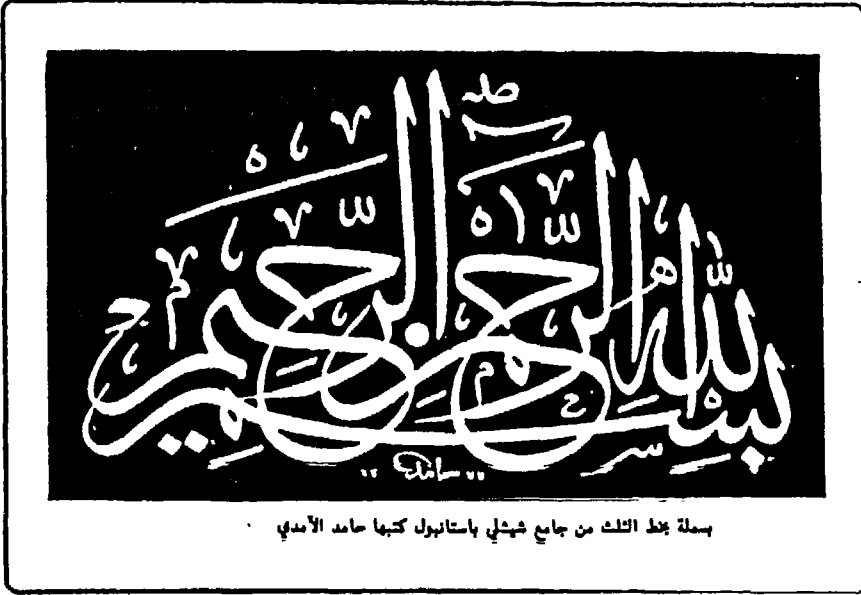 بسم الله الرحمن الرحيم
بسملة بخط الثلث من جامع شيشلي باستانبول كتبها حامد الآمدي